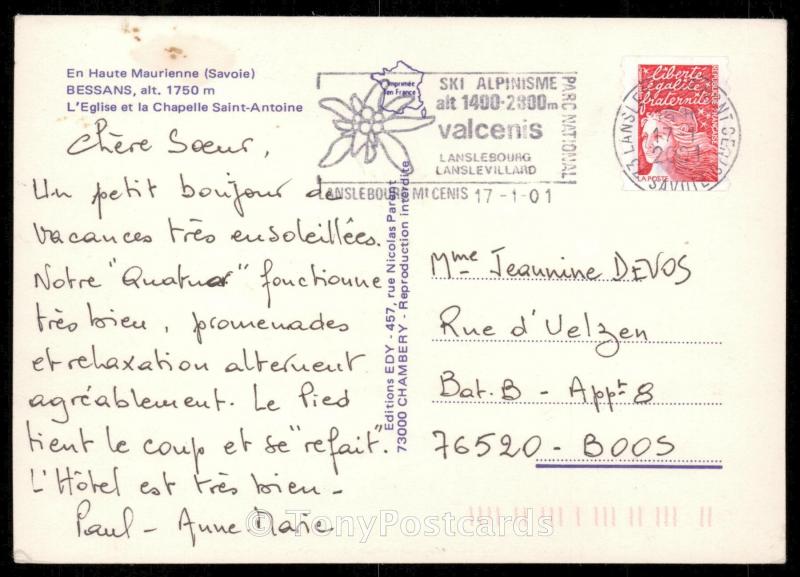 En Haute Maurienne (Savoie)
BESSANS, alt. 1750 m
L'Eglise et la Chapelle Saint-Antoine
Imprimée
en France
SKI ALPINISME
alt 1400-2800m
valcenis
LANSLEBOURG
LANSLEVILLARD
PARC NATIONAL
LANSLEBOURG Mt CENIS 17-1-01
liberté
égalité
fraternité
RÉPUBLIQUE FRANÇAISE
LA POSTE
SAVOIE
Chère Soeur,
Un petit bonjour de
vacances très ensoleillées.
Notre "Quatuor" fonctionne
très bien, promenades
et relaxation alternent
agréablement. Le Pied
tient le coup et se "refait".
L'Hôtel est très bien -
Paul - Anne Marie
Editions EDY - 457, rue Nicolas Parent
73000 CHAMBERY - Reproduction interdite
Mme Jeannine DEVOS
Rue d'Uelzen
Bat.B - Appt 8
76520 - BOOS
© TonyPostcards